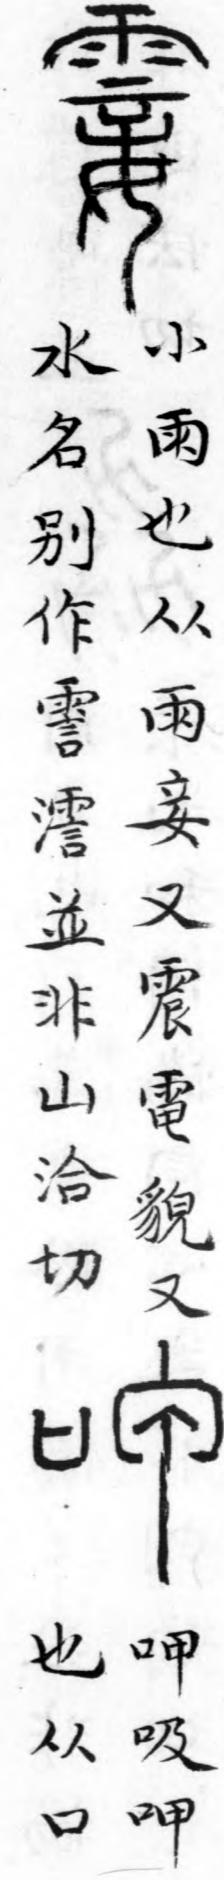 霎
小雨也从雨妾又震電貌又
水名別作䨛澐並非山洽切
呷
呷吸呷
也从口